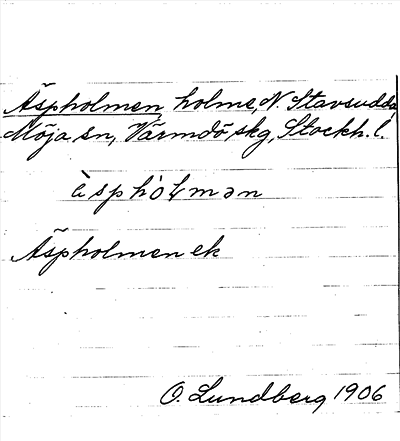 Äspholmen, holme, N. Stavsudda,
Möja sn, Värmdö skg, Stockh. l.
ὲspho̍ɬmən
Äspholmen ek
O. Lundberg 1906